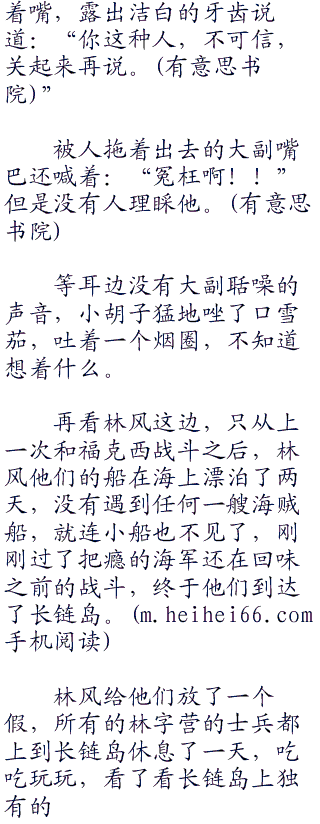 着嘴，露出洁白的牙齿说
道：“你这种人，不可信，
关起来再说。(有意思书
院)”
被人拖着出去的大副嘴
巴还喊着：“冤枉啊！！”
但是没有人理睬他。(有意思
书院)
等耳边没有大副聒噪的
声音，小胡子猛地唑了口雪
茄，吐着一个烟圈，不知道
想着什么。
再看林风这边，只从上
一次和福克西战斗之后，林
风他们的船在海上漂泊了两
天，没有遇到任何一艘海贼
船，就连小船也不见了，刚
刚过了把瘾的海军还在回味
之前的战斗，终于他们到达
了长链岛。(m.heihei66.com
手机阅读)
林风给他们放了一个
假，所有的林字营的士兵都
上到长链岛休息了一天，吃
吃玩玩，看了看长链岛上独
有的